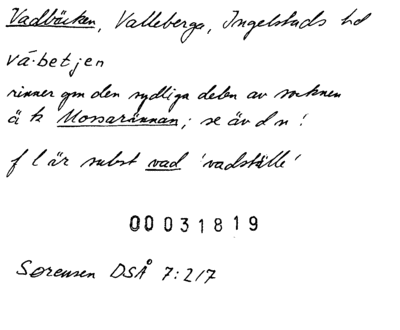 Vadbäcken, Valleberga, Ingelstads hd
vá·betjen
rinner gm den sydliga delen av socknen
ä k Mossarännan; se äv d n!
f l är subst vad 'vadställe'
00031819
Sørensen DSÅ 7:217